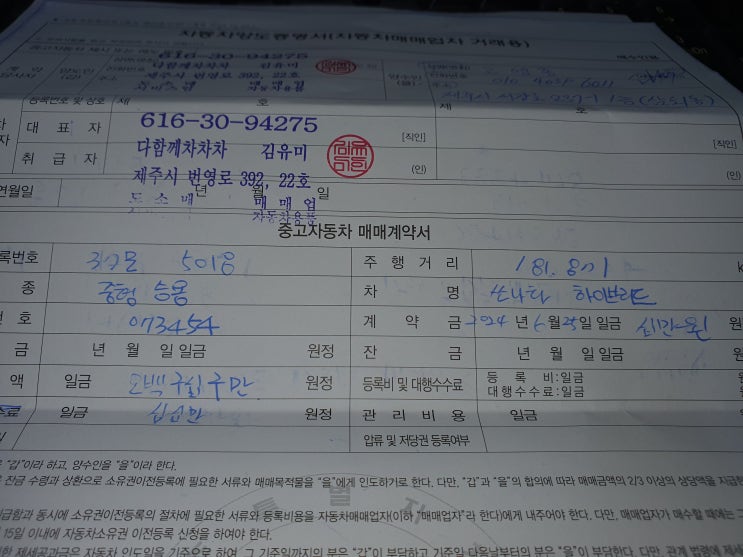 자동차양도증명서(자동차매매업자 거래용)
616-30-94275
다함께차차차 김유미
제주시 번영로 392, 22호
양수인 (을)
등록번호 및 상호 제 호 제 호
대 표 자 616-30-94275 [직인] [직인]
취 급 자 다함께차차차 김유미 (인) (인)
제주시 번영로 392, 22호
연월일 년 월 일
도소매 매매업
자동차용품
중고자동차 매매계약서
록번호 5018 주 행 거 리
종 중형 승용 차 명 쏘나타 하이브리드
호 073454 계 약 금 2024 년 6 월 25 일 일금
금 년 월 일 일금 원정 잔 금
액 일금 오백구십구만 원정 등록비 및 대행수수료 등 록 비:일금
대행수수료:일금
료 일금 십십만 원정 관 리 비 용 일금
압류 및 저당권 등록여부
"갑"이라 하고, 양수인을 "을"이라 한다.
잔금 수령과 상환으로 소유권이전등록에 필요한 서류와 매매목적물을 "을"에게 인도하기로 한다. 다만, "갑"과 "을"의 합의에 따라 매매금액의 2/3 이상의 상당액을 지급한
급함과 동시에 소유권이전등록의 절차에 필요한 서류와 등록비용을 자동차매매업자(이하 "매매업자"라 한다)에게 내주어야 한다. 다만, 매매업자가 매수할 때에는 그
15일 이내에 자동차소유권 이전등록 신청을 하여야 한다.
한 제세공과금은 자동차 인도일을 기준으로 하여, 그 기준일까지의 분은 "갑"이 부담하고 기준일 다음날부터의 분은 "을"이 부담한다. 다만, 관계 법령에